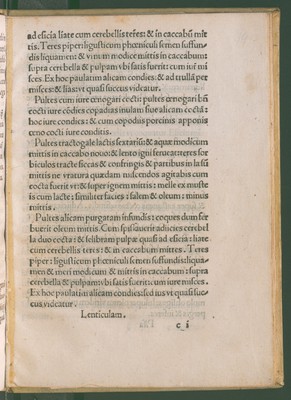 ad esicia liate cum cerebellis teres: & in caccabũ mit
tis. Teres piper: ligusticum phœniculi semen suffun
dis liquamen: & vinum modice mittis in caccabum:
supra cerebella & pulpam vbi satis fuerit: cum iuf mi
sces. Ex hoc paulatim alicam condies: & ad trullã per
misces: & lias: vt quasi succus videatur.
Pultes cum iure œnogari cocti: pultes œnogari bñ
cocti iure cõdies copadias inulam siue alicam coctã:
hoc iure condies: & cum copodiis porcinis apponis
œno cocti iure conditis.
Pultes tractogale lactis sextariũ: & aquæ modicum
mittis in caccabo nouo: & lento igni feruear: teres for
biculos tracte siccas & confringis & partibus in lac
mittis ne vratur quædam miscendos agitabis cum
cocta fuerit vt: & super ignem mittis: melle ex muste
is cum lacte: similiter facies: salem & oleum: minus
mittis.
Pultes alicam purgatam infundis: coques dum fer
buerit oleum: mittis. Cum spissauerit adiicies cerebel
la duo cocta: & selibram pulpæ quasi ad esicia: liatæ
cum cerebellis teres: & in caccabum mittes. Teres
piper: ligusticum phœniculi semen suffundis: liqua-
men & meri modicum & mittis in caccabum: supra
cerebella & pulpam vbi satis fuerit: cum iure misces.
Ex hoc paulatim alicam condies: sed ius vt quasi suc-
cus videatur.
Lenticulam.
c i